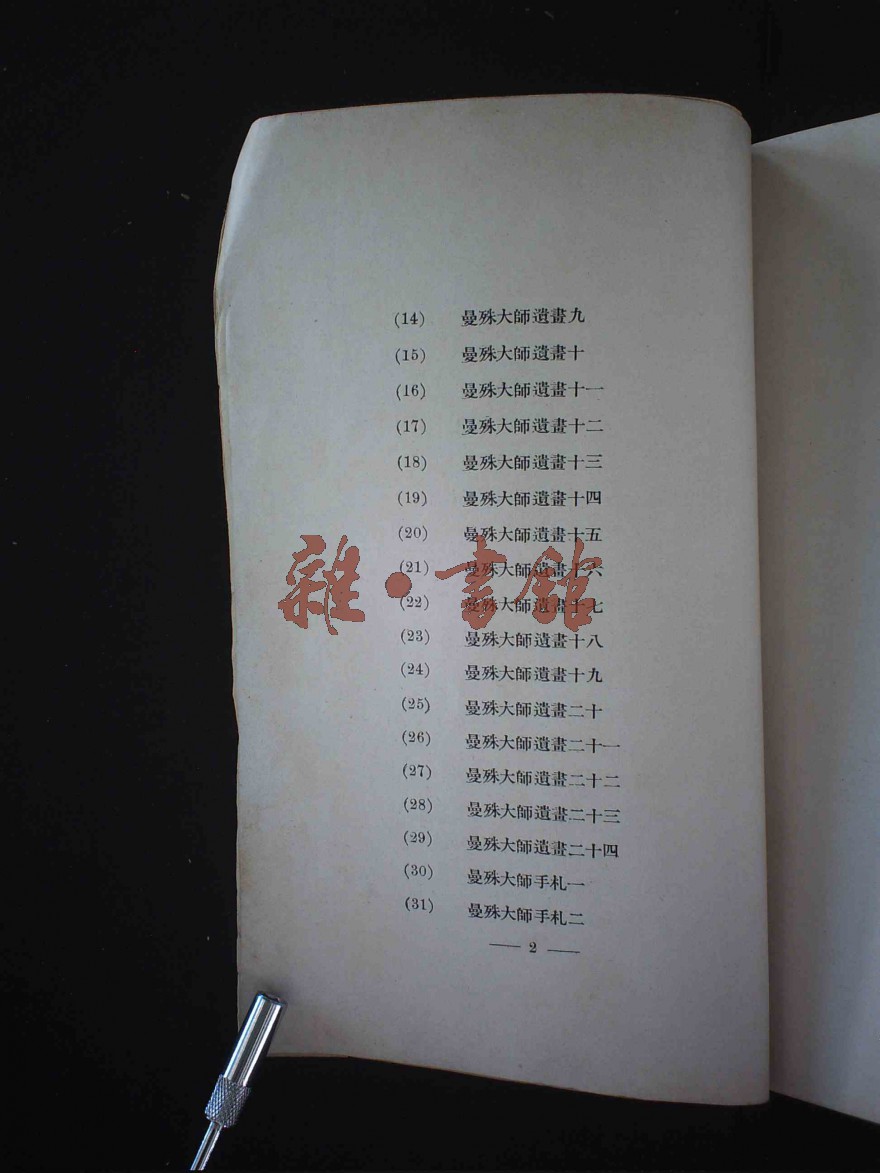 (14) 曼殊大師遺畫九
(15) 曼殊大師遺畫十
(16) 曼殊大師遺畫十一
(17) 曼殊大師遺畫十二
(18) 曼殊大師遺畫十三
(19) 曼殊大師遺畫十四
(20) 曼殊大師遺畫十五
(21) 曼殊大師遺畫十六
雜·書館
(22) 曼殊大師遺畫十七
(23) 曼殊大師遺畫十八
(24) 曼殊大師遺畫十九
(25) 曼殊大師遺畫二十
(26) 曼殊大師遺畫二十一
(27) 曼殊大師遺畫二十二
(28) 曼殊大師遺畫二十三
(29) 曼殊大師遺畫二十四
(30) 曼殊大師手札一
(31) 曼殊大師手札二
— 2 —